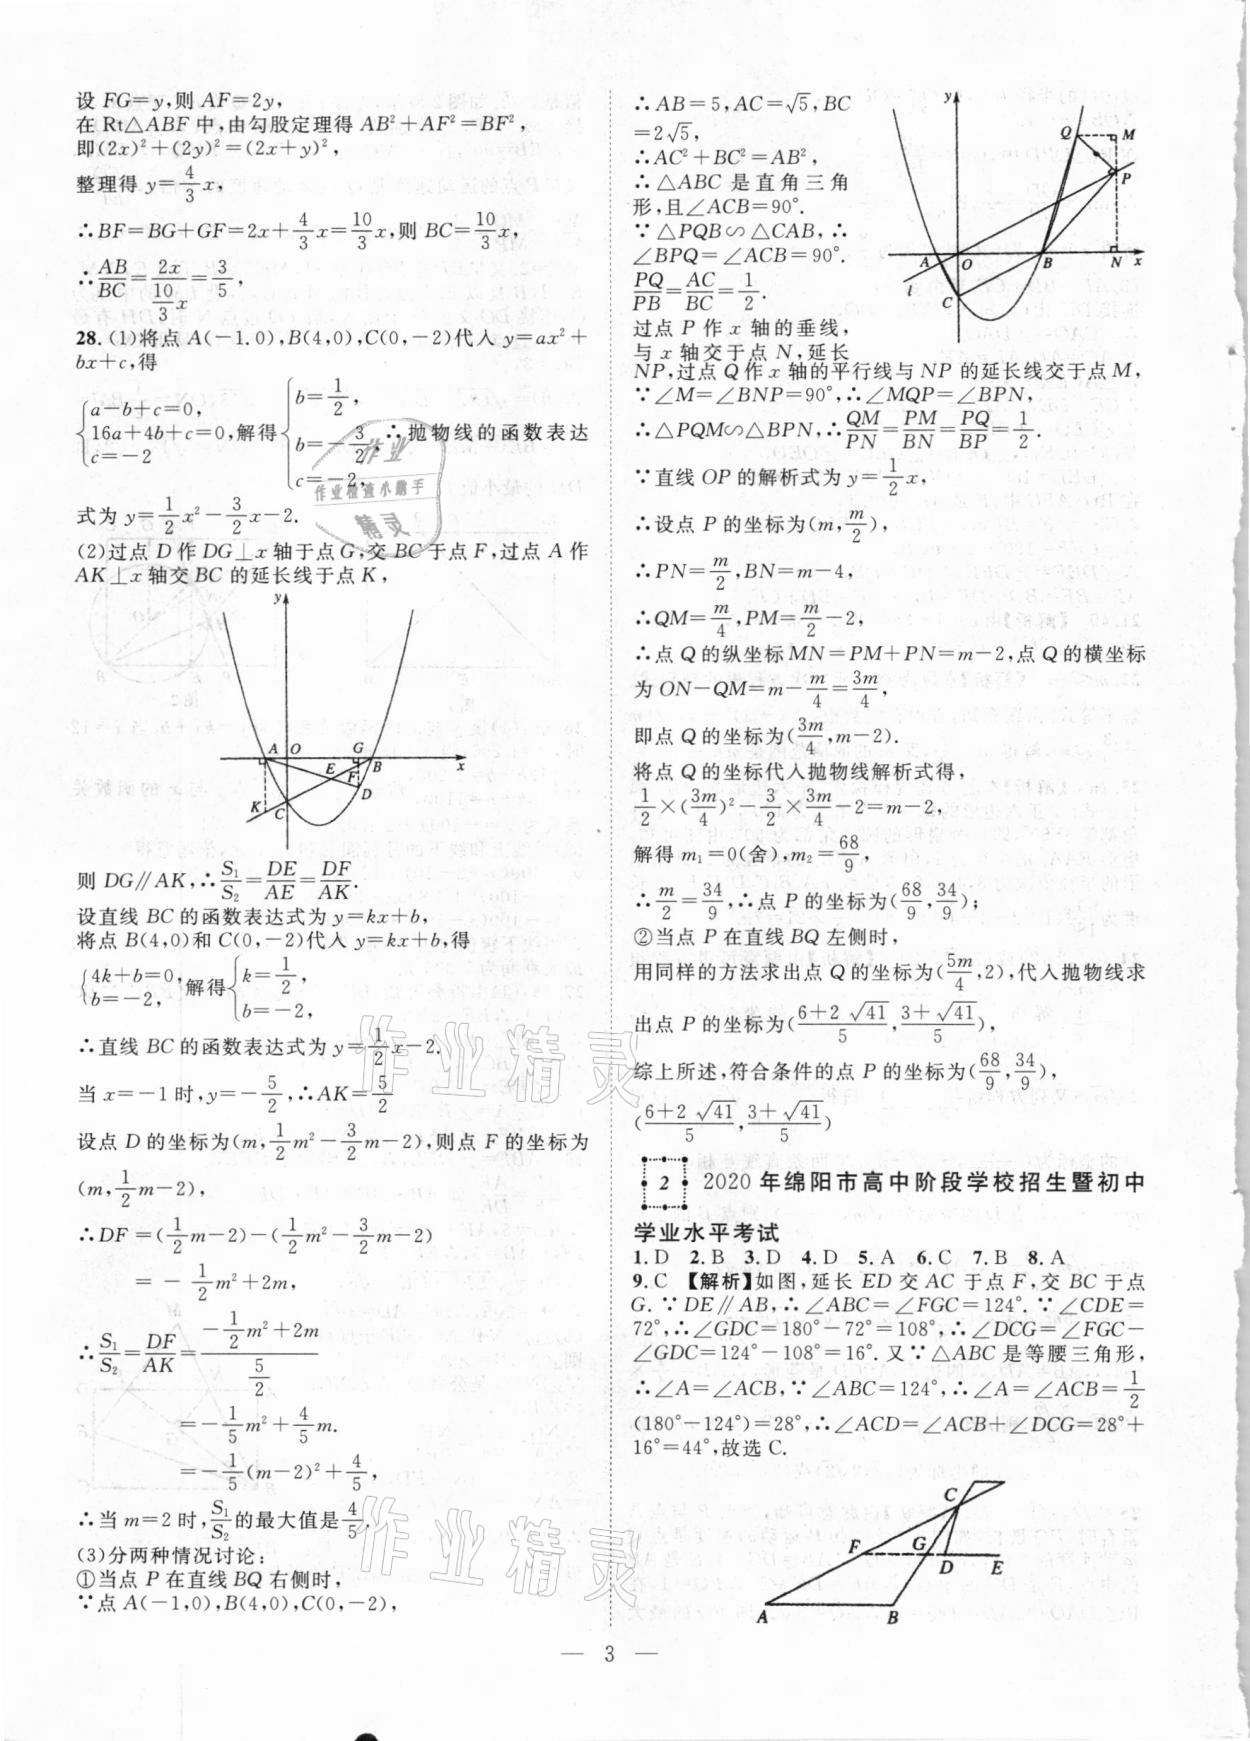 设 FG=y,则 AF=2y,
在 Rt△ABF 中,由勾股定理得 AB²+AF²=BF²,
即(2x)²+(2y)²=(2x+y)²,
整理得 y=4/3x,
∴BF=BG+GF=2x+4/3x=10/3x,则 BC=10/3x,
∴AB/BC=2x/(10/3x)=3/5,
28. (1)将点 A(-1,0),B(4,0),C(0,-2)代入 y=ax²+
bx+c,得
{a-b+c=0, 16a+4b+c=0, c=-2 解得 {b=1/2, b=-3/2, c=-2, ∴抛物线的函数表达
式为 y=1/2x²-3/2x-2.
(2)过点 D 作 DG⊥x 轴于点 G,交 BC 于点 F,过点 A 作
AK⊥x 轴交 BC 的延长线于点 K,
y
A O G B x
E F
K C D
则 DG∥AK,∴S₁/S₂=DE/AE=DF/AK.
设直线 BC 的函数表达式为 y=kx+b,
将点 B(4,0)和 C(0,-2)代入 y=kx+b,得
{4k+b=0, b=-2, 解得 {k=1/2, b=-2,
∴直线 BC 的函数表达式为 y=1/2x-2.
当 x=-1 时,y=-5/2,∴AK=5/2
设点 D 的坐标为(m,1/2m²-3/2m-2),则点 F 的坐标为
(m,1/2m-2),
∴DF=(1/2m-2)-(1/2m²-3/2m-2)
=-1/2m²+2m,
∴S₁/S₂=DF/AK=(-1/2m²+2m)/(5/2)
=-1/5m²+4/5m.
=-1/5(m-2)²+4/5,
∴当 m=2 时,S₁/S₂的最大值是4/5.
(3)分两种情况讨论:
①当点 P 在直线 BQ 右侧时,
∵点 A(-1,0),B(4,0),C(0,-2),
∴AB=5,AC=√5,BC
=2√5,
∴AC²+BC²=AB²,
∴△ABC 是直角三角
形,且∠ACB=90°.
∵△PQB∽△CAB,∴
∠BPQ=∠ACB=90°.
PQ/PB=AC/BC=1/2.
过点 P 作 x 轴的垂线,
与 x 轴交于点 N,延长
y
Q M
P
A O B N x
l C
NP,过点 Q 作 x 轴的平行线与 NP 的延长线交于点 M,
∵∠M=∠BNP=90°,∴∠MQP=∠BPN,
∴△PQM∽△BPN,∴QM/PN=PM/BN=PQ/BP=1/2.
∵直线 OP 的解析式为 y=1/2x,
∴设点 P 的坐标为(m,m/2),
∴PN=m/2,BN=m-4,
∴QM=m/4,PM=m/2-2,
∴点 Q 的纵坐标MN=PM+PN=m-2,点 Q 的横坐标
为 ON-QM=m-m/4=3m/4,
即点 Q 的坐标为(3m/4,m-2).
将点 Q 的坐标代入抛物线解析式得,
1/2×(3m/4)²-3/2×3m/4-2=m-2,
解得 m₁=0(舍),m₂=68/9,
∴m/2=34/9,∴点 P 的坐标为(68/9,34/9);
②当点 P 在直线 BQ 左侧时,
用同样的方法求出点 Q 的坐标为(5m/4,2),代入抛物线求
出点 P 的坐标为((6+2√41)/5,(3+√41)/5),
综上所述,符合条件的点 P 的坐标为(68/9,34/9),
((6+2√41)/5,(3+√41)/5)
2 2020 年绵阳市高中阶段学校招生暨初中
学业水平考试
1. D 2. B 3. D 4. D 5. A 6. C 7. B 8. A
9. C 【解析】如图,延长 ED 交 AC 于点 F,交 BC 于点
G. ∵DE∥AB,∴∠ABC=∠FGC=124°. ∵∠CDE=
72°,∴∠GDC=180°-72°=108°,∴∠DCG=∠FGC-
∠GDC=124°-108°=16°. 又∵△ABC 是等腰三角形,
∴∠A=∠ACB,∵∠ABC=124°,∴∠A=∠ACB=1/2
(180°-124°)=28°,∴∠ACD=∠ACB+∠DCG=28°+
16°=44°,故选 C.
C
F G D E
A B
— 3 —
作业
作业检查小助手
精灵
作业精灵
作业精灵